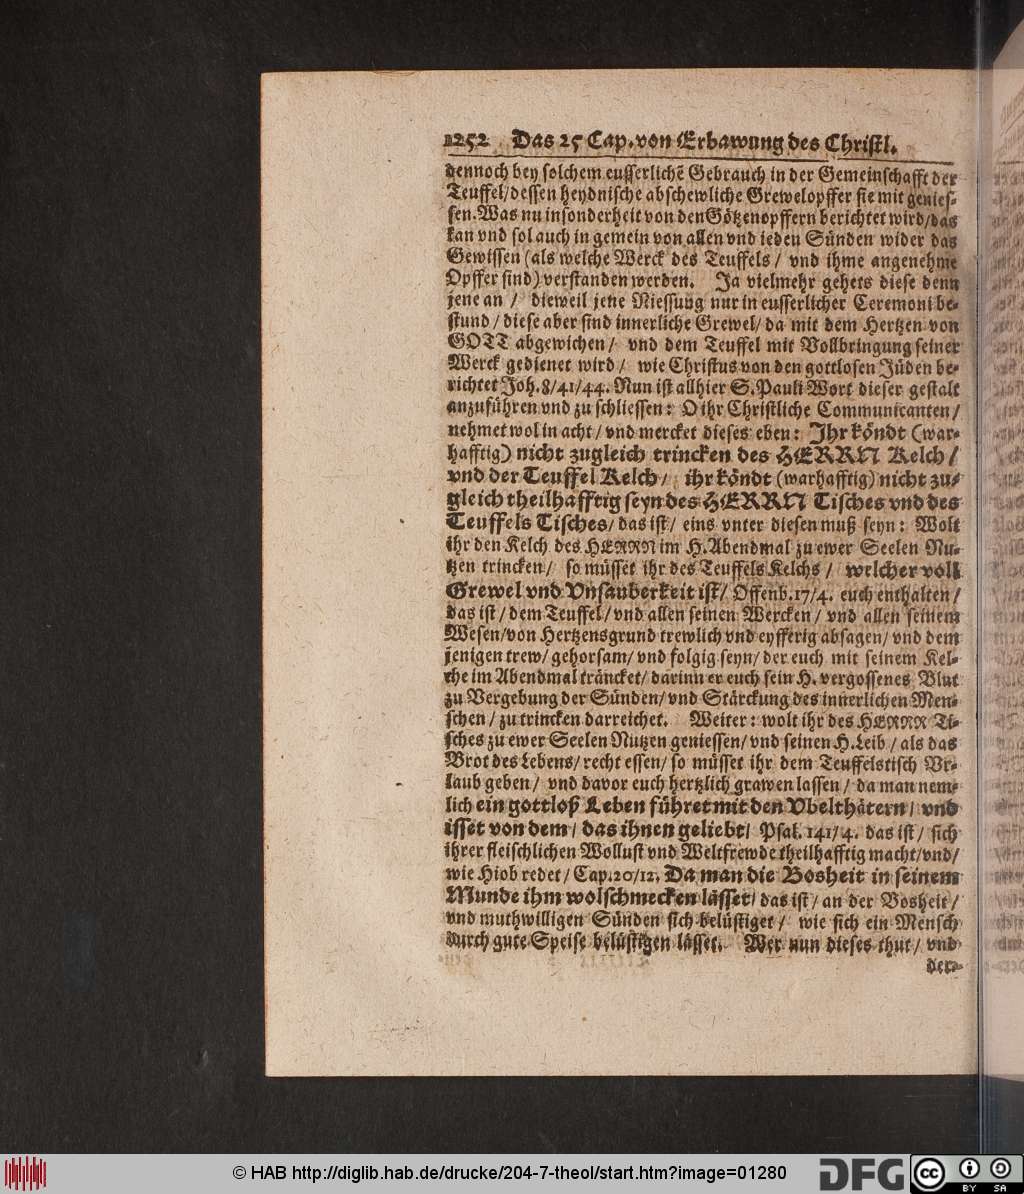 1252 Das 25 Cap. von Erbawung des Christl.
dennoch bey solchem eusserlichẽ Gebrauch in der Gemeinschafft der
Teuffel/dessen heydnische abschewliche Grewelopffer sie mit genies-
sen. Was nu insonderheit von den Götzenopffern berichtet wird/das
kan vnd sol auch in gemein von allen vnd ieden Sünden wider das
Gewissen (als welche Werck des Teuffels / vnd ihme angenehme
Opffer sind) verstanden werden. Ja vielmehr gehets diese denn
jene an / dieweil jene Niessung nur in eusserlicher Ceremoni be-
stund / diese aber sind innerliche Grewel/ da mit dem Hertzen von
GOTT abgewichen / vnd dem Teuffel mit Vollbringung seiner
Werck gedienet wird / wie Christus von den gottlosen Jüden be-
richtet Joh. 8/41/44. Nun ist allhier S. Pauli Wort dieser gestalt
anzuführen vnd zu schliessen: O ihr Christliche Communicanten /
nehmet wol in acht / vnd mercket dieses eben: Ihr köndt (war-
hafftig) nicht zugleich trincken des HERRN Kelch /
vnd der Teuffel Kelch / ihr köndt (warhafftig) nicht zu-
gleich theilhafftig seyn des HERRN Tisches vnd des
Teuffels Tisches/ das ist / eins vnter diesen muß seyn: Wolt
ihr den Kelch des HERRN im H. Abendmal zu ewer Seelen Nu-
tzen trincken / so müsset ihr des Teuffels Kelchs / welcher voll
Grewel vnd Vnsauberkeit ist/ Offenb. 17/4. euch enthalten /
das ist / dem Teuffel / vnd allen seinen Wercken / vnd allen seinem
Wesen/von Hertzensgrund trewlich vnd eyfferig absagen/ vnd dem
jenigen trew/ gehorsam/ vnd folgig seyn/ der euch mit seinem Kel-
che im Abendmal träncket/ darinn er euch sein H. vergossenes Blut
zu Vergebung der Sünden/ vnd Stärckung des innerlichen Men-
schen / zu trincken darreichet. Weiter: wolt ihr des HERRN Ti-
sches zu ewer Seelen Nutzen geniessen/ vnd seinen H. Leib / als das
Brot des Lebens/ recht essen/ so müsset ihr dem Teuffelstisch Vr-
laub geben / vnd davor euch hertzlich grawen lassen / da man nem-
lich ein gottloß Leben führet mit den Vbelthätern / vnd
isset von dem / das ihnen geliebt/ Psal. 141/4. das ist / sich
ihrer fleischlichen Wollust vnd Weltfrewde theilhafftig macht/vnd/
wie Hiob redet / Cap. 20/12. Da man die Bosheit in seinem
Munde ihm wolschmecken lässet/ das ist / an der Bosheit /
vnd muthwilligen Sünden sich belüstiget / wie sich ein Mensch
durch gute Speise belüstigen lässet. Wer nun dieses thut / vnd
der-
© HAB http://diglib.hab.de/drucke/204-7-theol/start.htm?image=01280
DFG
cc BY SA